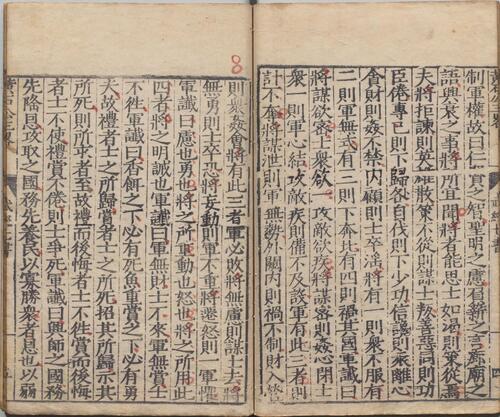 制軍權故曰仁賢之智聖明之慮負薪之言廊廟之
語興衰之事將所宜聞將者能思士如渴則策從焉
夫將拒諫則英雄散策不從則謀士叛善惡同則功
臣倦專己則下歸咎自伐則下少功信讒則衆離心
貪財則姦不禁內顧則士卒淫將有一則衆不服有
二則軍無式有三則下奔北有四則禍其國軍讖曰
將謀欲密士衆欲一攻敵欲疾將謀密則姦心閉士
衆一則軍心結攻敵疾則備不及設軍有此三者則
計不奪將謀泄則軍無勢外闚內則禍不制財入營
四
8
則衆姦會將有此三者軍必敗將無慮則謀士去將
無勇則士卒恐將妄動則軍不重將遷怒則一軍懼
軍讖曰慮也勇也將之所重動也怒也將之所用此
四者將之明誡也軍讖曰軍無財士不來軍無賞士
不徃軍讖曰香餌之下必有死魚重賞之下必有勇
夫故禮者士之所歸賞者士之所死招其所歸示其
所死則所求者至故禮而後悔者士不徃賞而後悔
者士不使禮賞不倦則士爭死軍讖曰興師之國務
先隆恩攻取之國務先養民以寡勝衆者恩也以弱
五